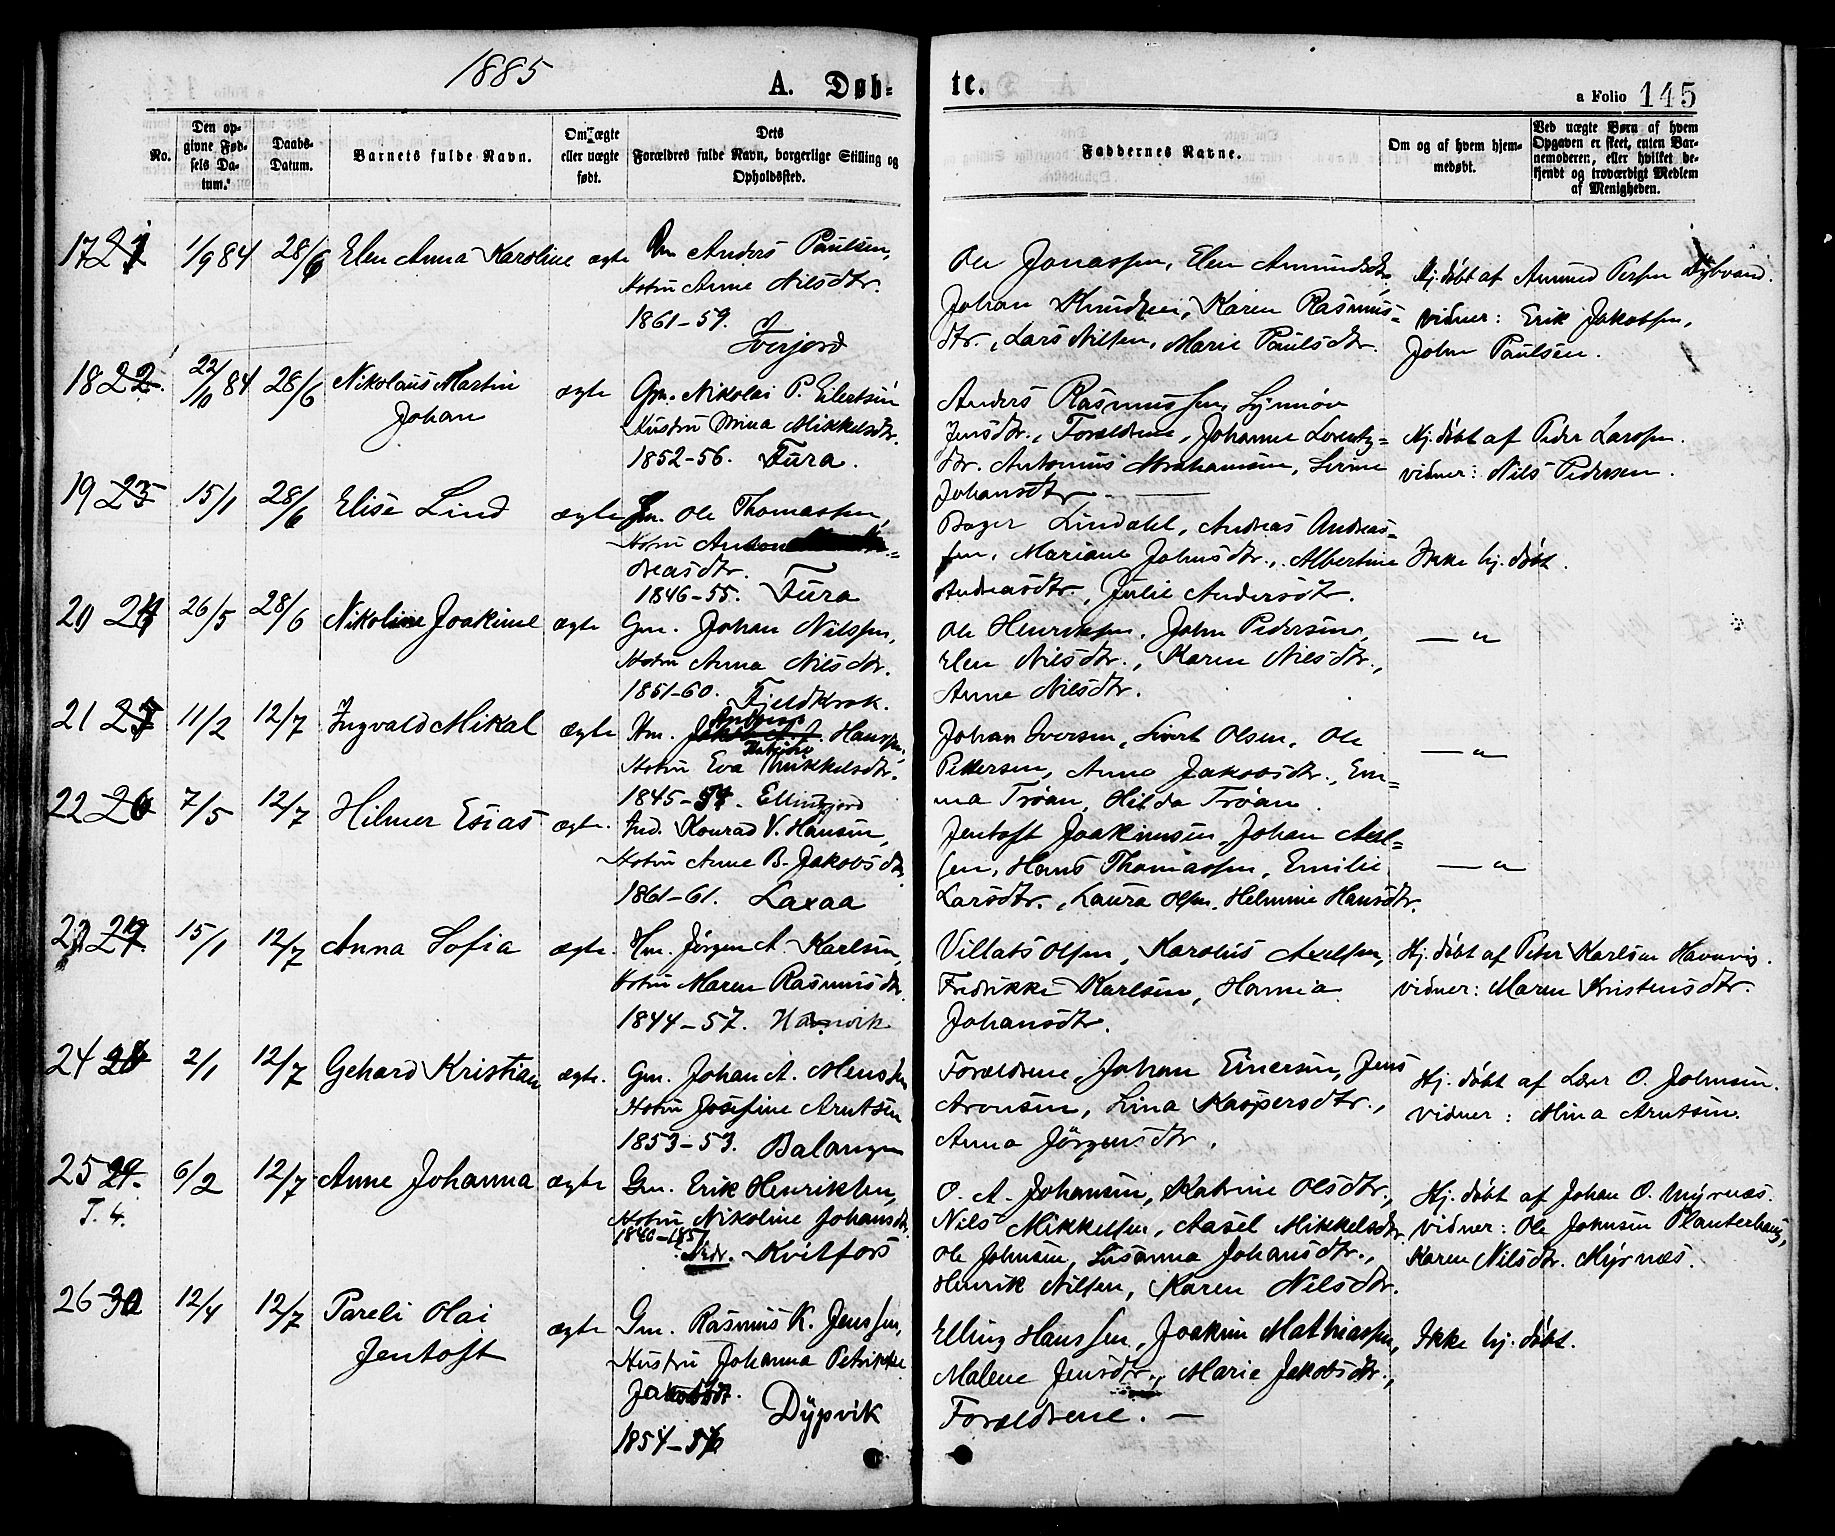 1885
A. Døb-
te.
a Folio 145
No.
Den op-
givne Fød-
sels Da-
tum.
Daabs-
Datum.
Barnets fulde Navn.
Om ægte
eller uægte
født.
Dets
Forældres fulde Navn, borgerlige Stilling og
Opholdssted.
Faddernes Navne.
Om og af hvem hjem-
medøbt.
Ved uægte Børn af hvem
Opgaven er skeet, enten Bar-
nemoderen, eller hvilket be-
kjendt og troværdigt Medlem
af Menigheden.
17 21 1/9 84 28/6 Elen Anna Karoline ægte Anders Paulsen,
Hstru Anne Nilsdtr.
1861-59.
Sverjord
Ole Jonassen, Elen Amundsdtr,
Johan Knudsen, Karen Rasmus=
dtr., Lars Nilsen, Marie Paulsdtr.
Hj. døbt af Amund Persen Dybvand.
vidner: Erik Jakobsen,
John Paulsen.
18 22. 22/10 84 28/6 Nikolaus Martin
Johan
ægte Gm. Nikolai P. Eilertsen
Hustru Mina Mikkelsdtr.
1852-56. Fura.
Anders Rasmussen, Synnøv
Jensdtr., Forældrene, Johanne Lorentz=
dtr. Antonius Abrahamsen, Lovine
Johansdtr —
Hj. døbt af Peder Larssen.
vidner: Nils Pedersen.
19 23 15/1 28/6 Elise Lind ægte Gm. Ole Thomassen,
Hstru Anton
dreasdtr.
1846-55. Fura
Boger Lindahl, Andreas Andreas=
sen, Mariane Johnsdtr., Albertine
Andreasdtr., Julie Andersdtr.
Ikke hj. døbt.
20 24 26/5 28/6 Nikoline Joakime ægte Gm. Johan Nilssen,
Hstru Anna Nilsdtr.
1851-60. Fjeldkrok.
Ole Henriksen, John Pedersen,
Elen Nilsdtr., Karen Nilsdtr.,
Anne Nilsdtr.
— " 
21 25 11/2 12/7 Ingvald Mikal ægte Hm. Andreas Hanssen,
Hstru Eva Mikkelsdtr.
1845-54. Ellingfjord
Johan Iversen, Sivert Olsen, Ole
Pettersen, Anne Jakobsdtr., Em=
ma Trøan, Hilda Trøan.
— "
22 26 7/5 12/7 Hilmer Esias ægte. Ind. Konrad V. Hansen,
Hstru Anne B. Jakobsdtr.
1861-61. Laxaa
Jentoft Joakimsen, Johan Axel=
sen, Hans Thomassen, Emilie
Larsdtr., Laura Olsen, Helmine Hansdtr.
— "
23 27. 15/1 12/7 Anna Sofia ægte. Hm. Jørgen A. Karlsen,
Hstru Maren Rasmusdtr.
1844-57. Havnvik
Villats Olsen, Karolus Axelsen,
Fredrikke Karlsen, Hanna
Johansdtr.
Hj. døbt af Peter Karlsen Havnvig.
vidner: Maren Kristensdtr.
24 28 2/1 12/7 Gehard Kristian ægte. Gm. Johan A. Monssen
Hstru Josefine Arntsen
1853-53. Balangen
Forældrene, Johan Einersen, Jens
Aronsen, Lina Kaspersdtr.,
Anna Jörgensdtr.
Hj. døbt af Lær O. Johnsen.
vidner: Mina Arntsen.
25 29. 6/2 12/7 Anne Johanna ægte Gm. Erik Henriksen,
T. 4.
Hstru Nikoline Johansdtr.
1840-1857
Nedr. Kvitfors
O. A. Johansen, Katrine Olsdtr.,
Nils Mikkelsen, Aasel Mikkelsdtr.
Ole Johnsen, Susanna Johansdtr.,
Henrik Nilsen, Karen Nilsdtr.
Hj. døbt af Johan O. Myrnæs.
vidner: Ole Johnsen Planterhaug,
Karen Nilsdtr. Myrnæs.
26 30 12/4 12/7 Pareli Olai
Jentoft
ægte Gm. Rasmus K. Jenssen,
Hustru Johanna Petrikke
Jakobsdt.
Dypvik
1854-56
Elling Hanssen, Joakim Mathiassen,
Malene Jensdtr., Marie Jakobsdtr.,
Forældrene. —
Ikke hj. døbt.